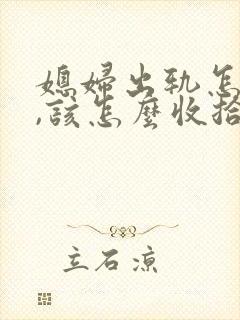 媳婦出軌怎
,該怎麼收拾
立石涼